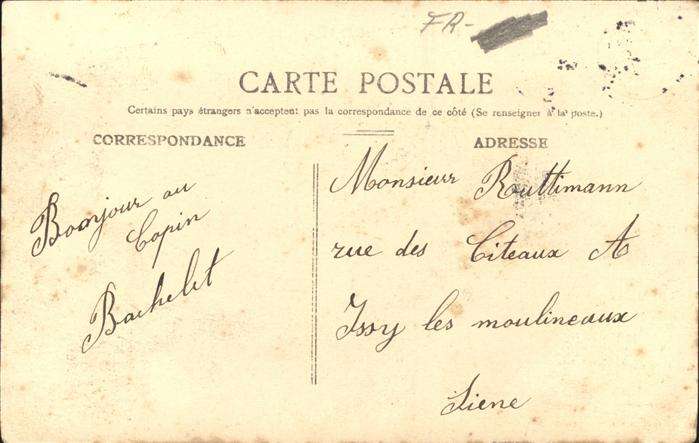 FR-
CARTE POSTALE
Certains pays étrangers n'acceptent pas la correspondance de ce côté (Se renseigner à la poste.)
CORRESPONDANCE
ADRESSE
Bonjour au
Copin
Bachelet
Monsieur Routtimann
rue des Citeaux A
Issy les moulineaux
Siene